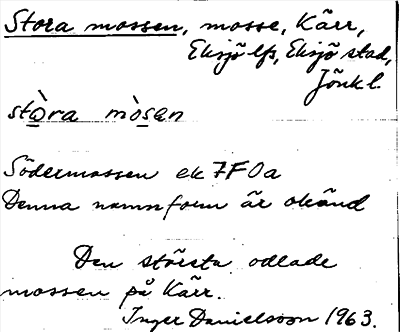 Stora mossen, mosse, Kärr,
Eksjö lfs, Eksjö stad,
Jönk l.
stò̱ra mòs̱en
Södermossen ek 7F0a
Denna namnform är okänd
Den största odlade
mossen på Kärr.
Inger Danielsson 1963.